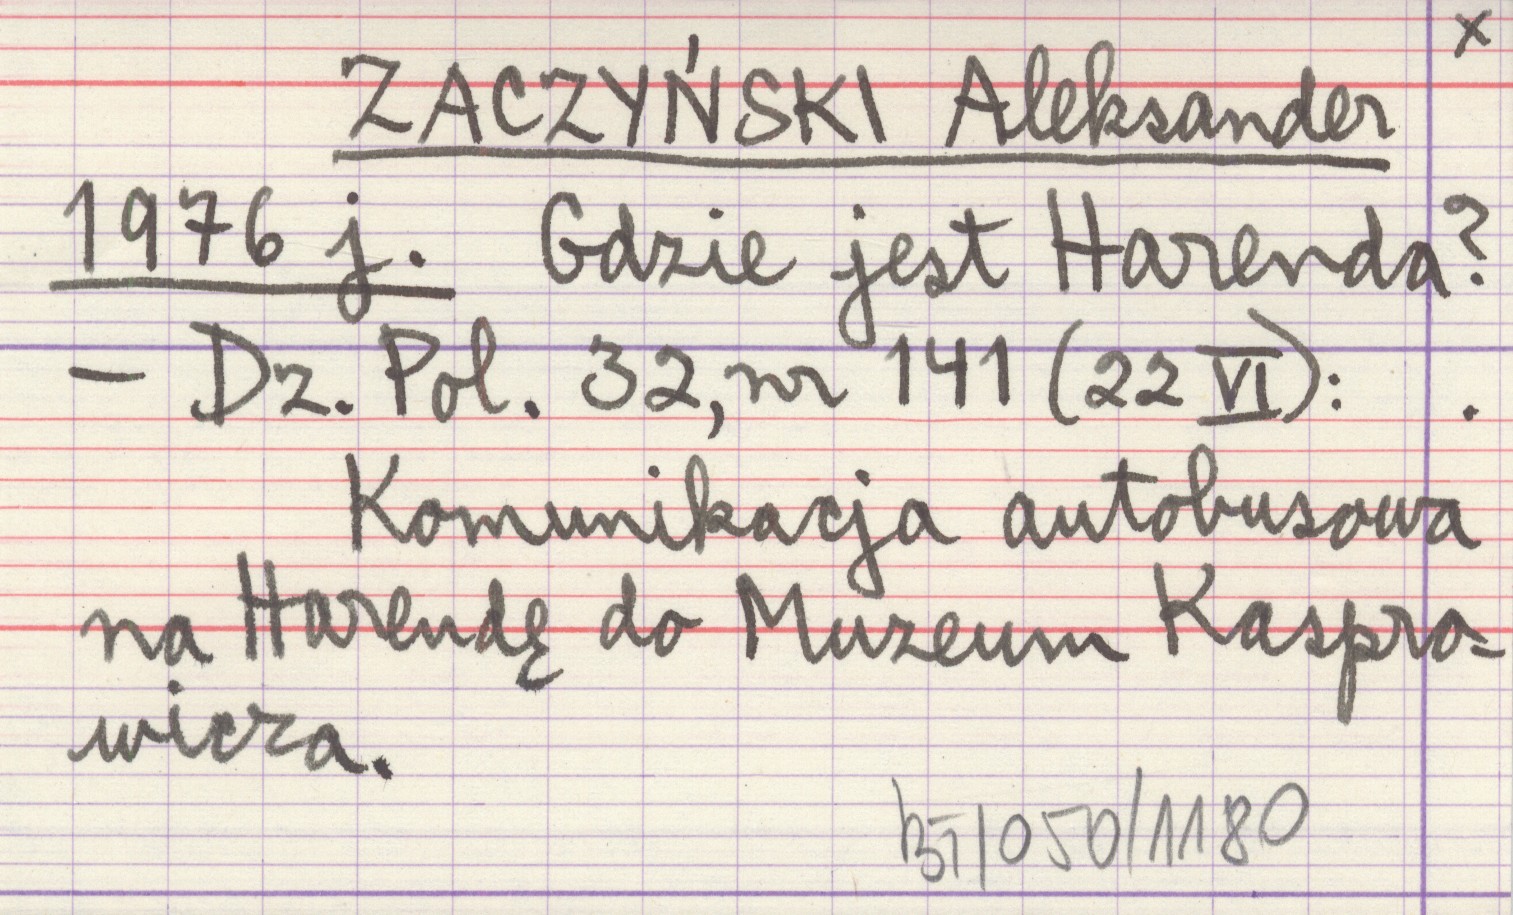 x
ZACZYŃSKI Aleksander
1976 j. Gdzie jest Harenda?
— Dz. Pol. 32, nr 141 (22 VI): .
Komunikacja autobusowa
na Harendę do Muzeum Kaspro=
wicza.
BT/050/1180